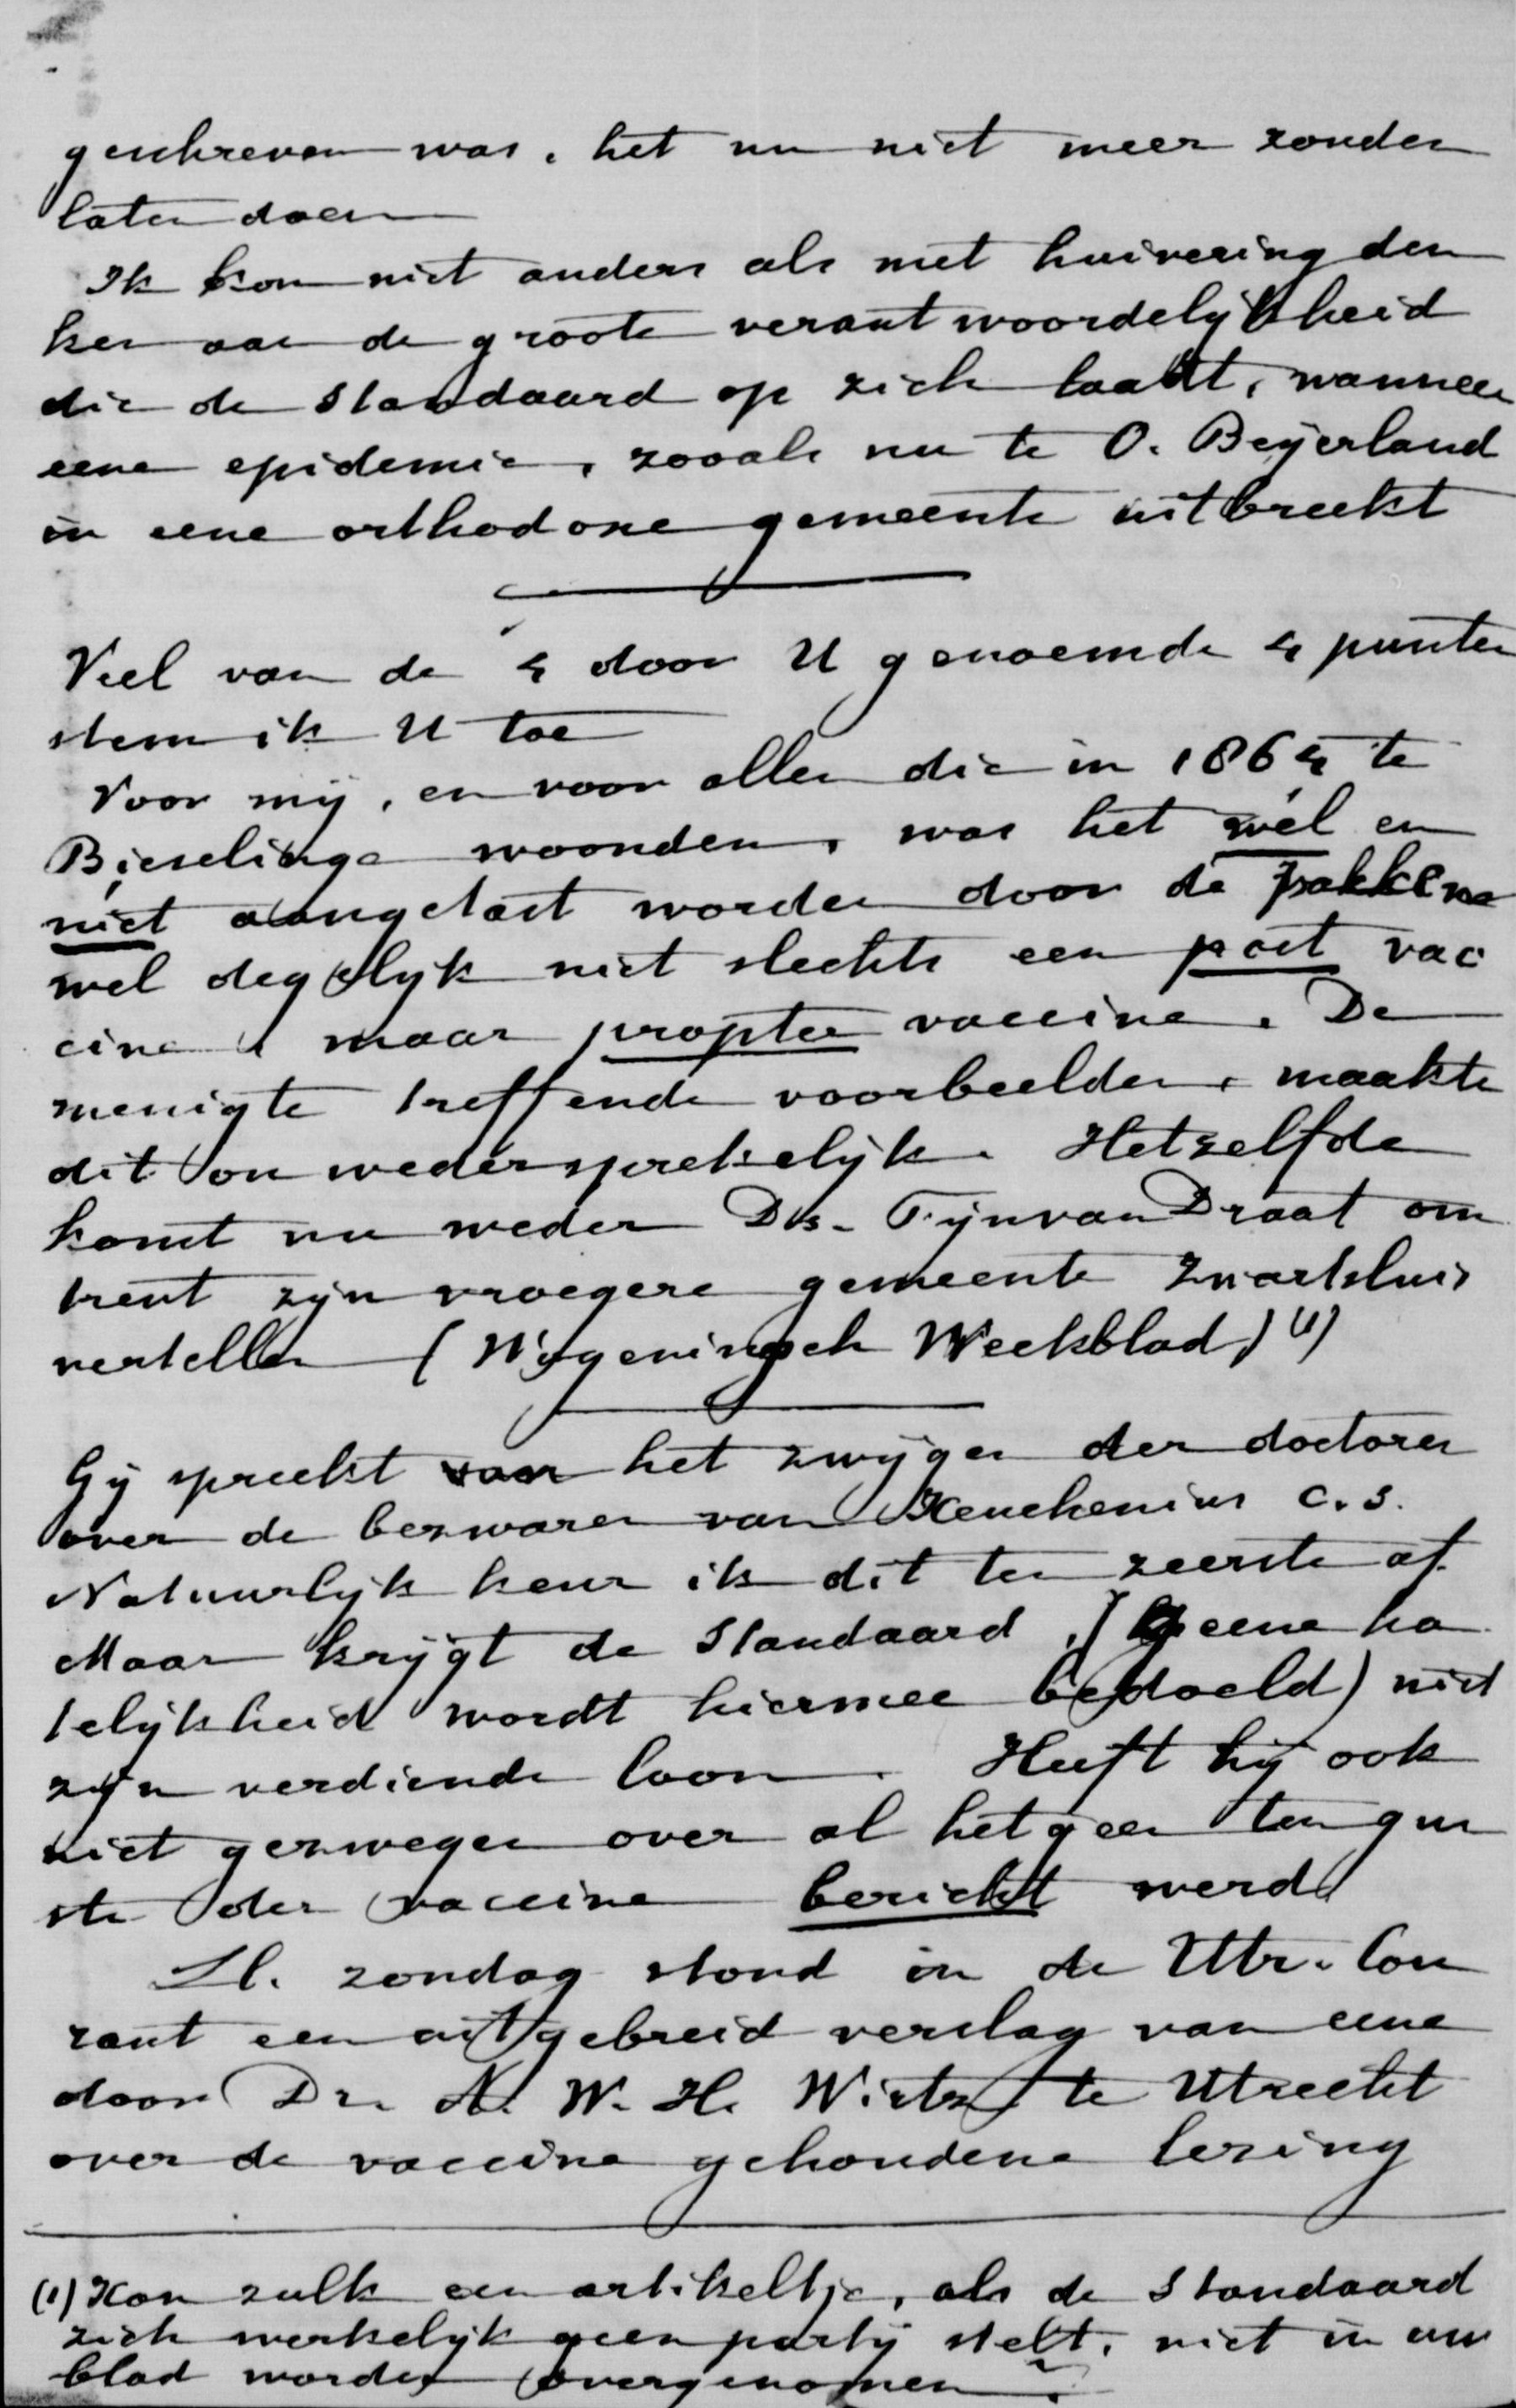 geschreven was, het nu niet meer zouden
laten doen
Ik kon niet anders als met huivering den
ken aan de groote verantwoordelijkheid
die de Standaard op zich laadt, wanneer
eene epidemie, zooals nu te O. Beijerland
in eene orthodoxe gemeente uitbreekt
Veel van de 4 door U genoemde 4 punten
stem ik U toe
Voor mij, en voor allen die in 1864 te
Biezelinge woonden, was het wél en
niet aangetast worden door de pokken
wel degelijk niet slechts een post vac
cine maar propter vaccine. De
menigte treffende voorbeelden, maakte
dit onwedersprekelijk. Hetzelfde
komt nu weder Ds. Fijnvandraat om
trent zijn vroegere gemeente Zwartsluis
vertellen (Wageningsch Weekblad) (1)
Gij spreekt van het zwijgen der doctoren
over de bezwaren van Keuchenius c.s.
Natuurlijk keur ik dit ten zeerste af
Maar krijgt de Standaard, (geene ha
telijkheid wordt hiermee bedoeld) niet
zijn verdiende loon. Heeft hij ook
niet gezwegen over al hetgeen ten gun
ste der vaccine bericht werd
Ll. zondag stond in de Utr. Cou
rant een uitgebreid verslag van eene
door Dr. A. W. H. Wirtz te Utrecht
over de vaccine gehoudene lezing
(1) Kon zulk een artikeltje, als de Standaard
zich werkelijk geen partij stelt, niet in uw
blad worden overgenomen.